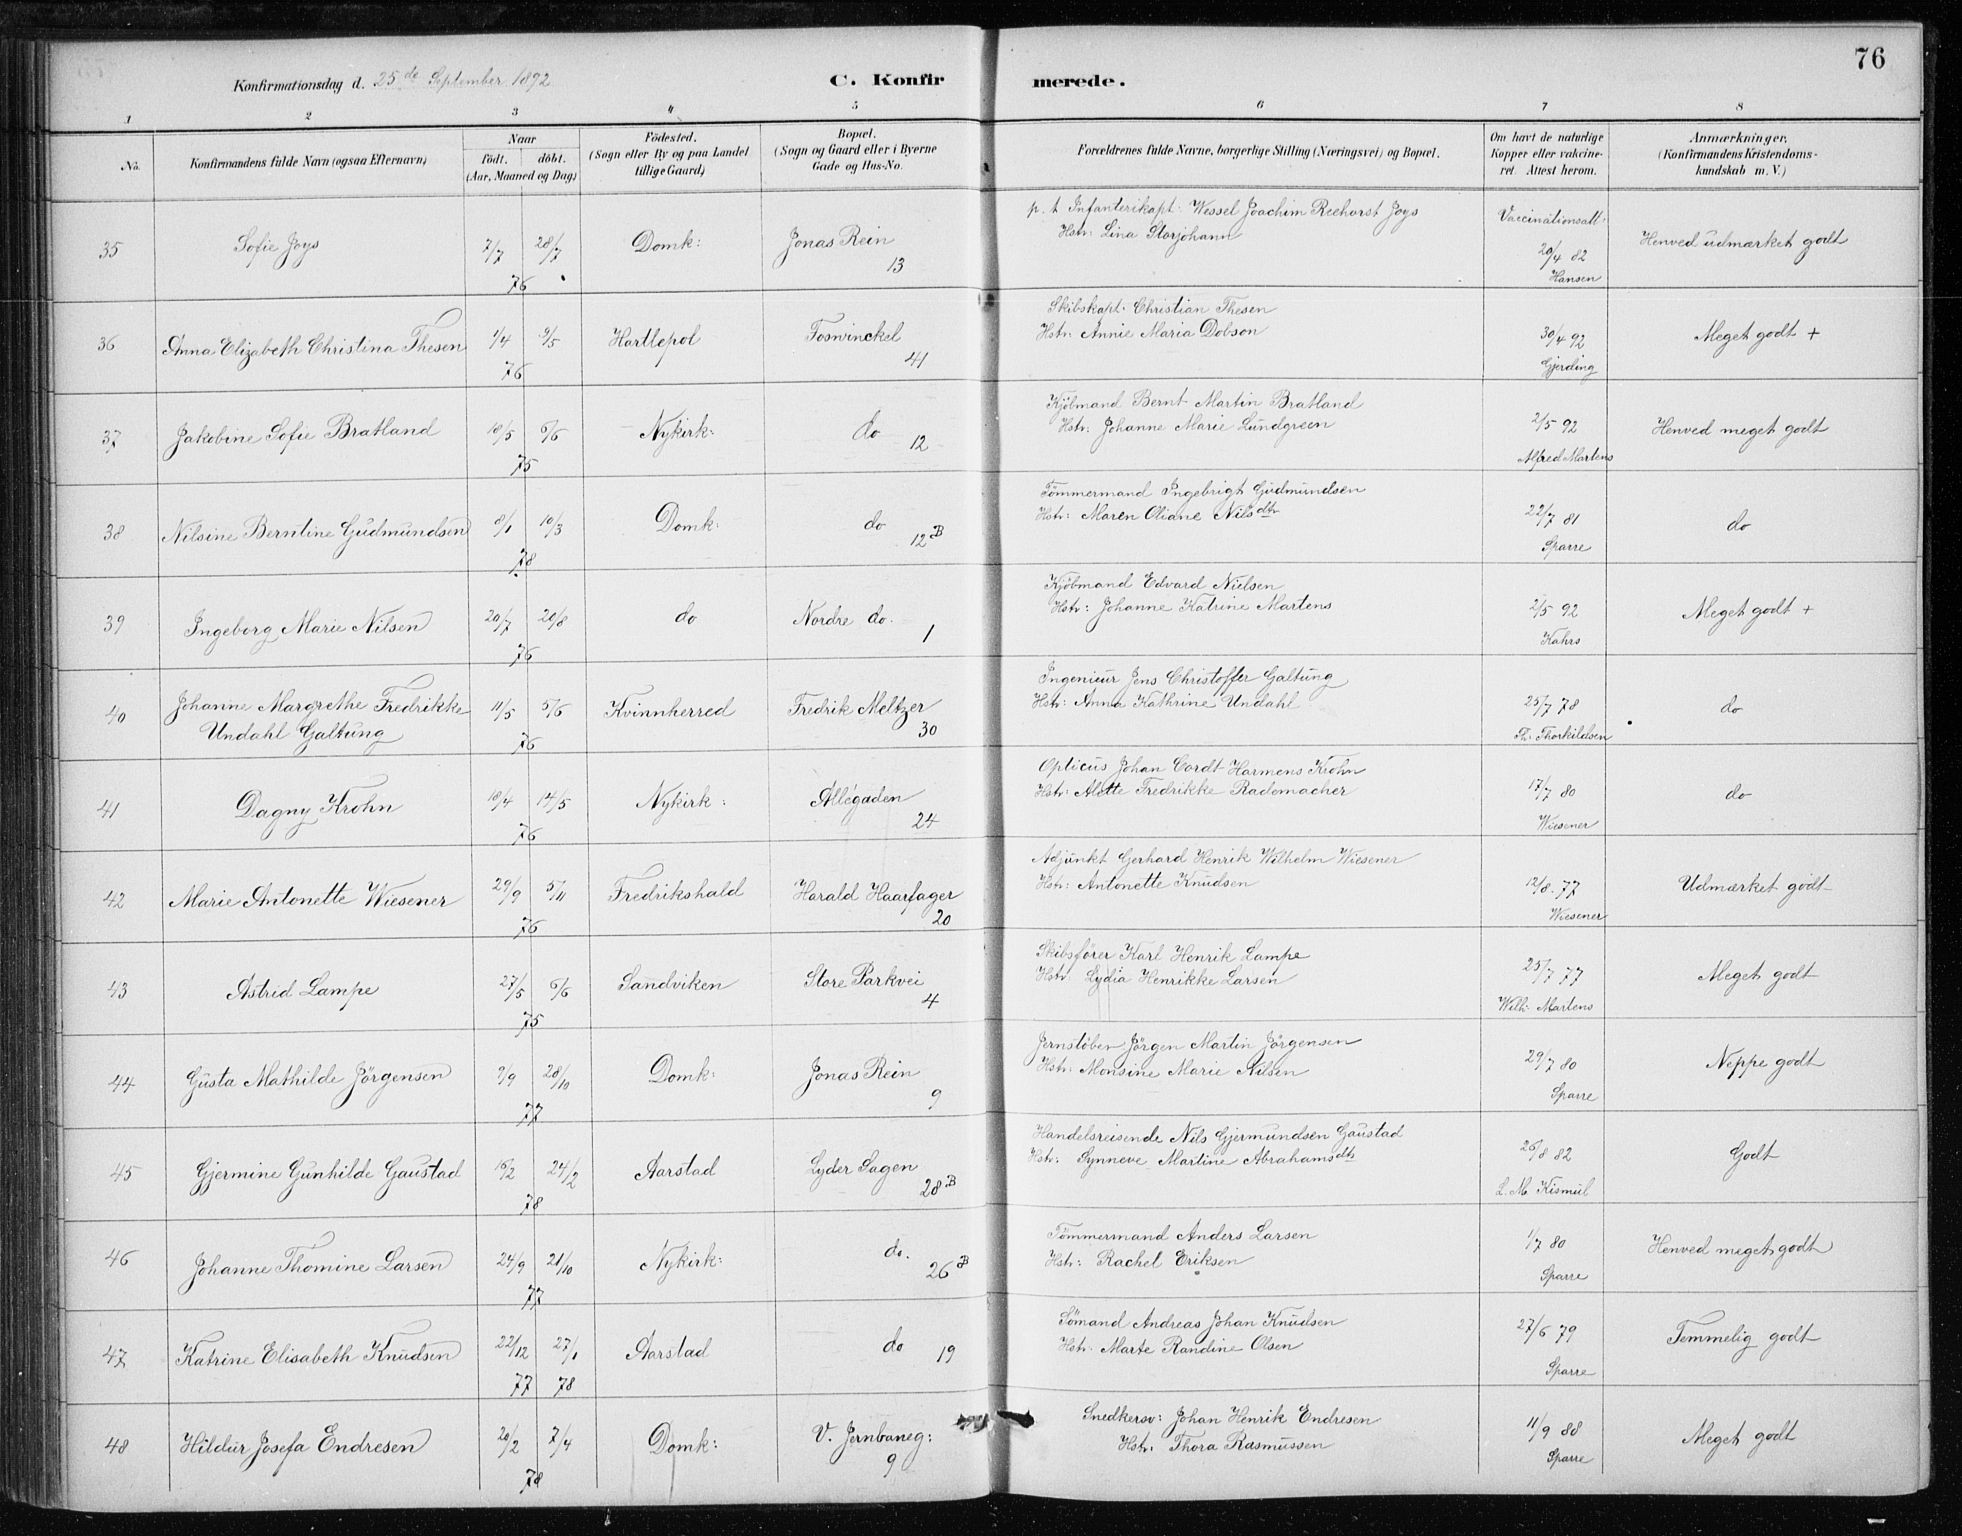 76
Konfirmationsdag d. 25de September 1892
C. Konfirmerede.
1 2 3 4 5 6 7 8
No.
Konfirmandens fulde Navn (ogsaa Efternavn)
Naar
födt. döbt.
(Aar, Maaned og Dag)
Födested.
(Sogn eller By og paa Landet
tillige Gaard)
Bopæl.
(Sogn og Gaard eller i Byerne
Gade og Hus-No.
Forældrenes fulde Navne, borgerlige Stilling (Næringsvei) og Bopæl.
Om havt de naturlige
Kopper eller vakcine-
ret. Attest herom.
Anmærkninger,
(Konfirmandens Kristendoms-
kundskab m. V.)
35 Sofie Joys 7/7 28/7 76 Domk: Jonas Rein 13
p. t Infanterikapt: Wessel Joachim Reehorst Joys
Hstr: Lina Storjohann
Vaccinationsatt.
20/4 82 Hansen
Henved udmærket godt
36 Anna Elizabeth Christina Thesen 1/4 9/5 76 Hartlepol Fosvinckel 41
Skibskapt. Christian Thesen
Hstr: Annie Maria Dobson
30/4 92 Gjerding
Meget godt +
37 Jakobine Sofie Bratland 18/5 6/6 75 Nykirk: do 12
Kjöbmand Bernt Martin Bratland
Hstr: Johanne Marie Lundgreen
2/5 92 Alfred Martens
Henved meget godt
38 Nilsine Berntine Gudmundsen 8/1 10/3 78 Domk: do 12 B
Tömmermand Ingebrigt Gudmundsen
Hstr: Maren Oliane Nilsdtr
22/7 81 Sparre
do
39 Ingeborg Marie Nilsen 20/7 20/8 76 do Nordre do. 1
Kjöbmand Edvard Nielsen
Hstr: Johanne Katrine Martens
2/5 92 Kahrs
Meget godt +
40 Johanne Margrethe Fredrikke
Undahl Galtung 11/5 5/6 76 Kvinnherred Fredrik Meltzer 30
Ingenieur Jens Christoffer Galtung
Hstr: Anna Kathrine Undahl
25/7 78 Th: Thorkildsen
do
41 Dagny Krohn 18/4 14/5 76 Nykirk: Allégaden 24
Opticus Johan Cordt Harmens Krohn
Hstr: Alette Fredrikke Rademacher
17/7 80 Wiesener
do
42 Marie Antonette Wiesener 29/9 5/11 76 Fredrikshald Harald Haarfager 20
Adjunkt Gerhard Henrik Wilhelm Wiesener
Hstr: Antonette Knudsen
12/8 77 Wiesener
Udmærket godt
43 Astrid Lampe 27/5 6/6 75 Sandviken Store Parkvei 4
Skibsfører Karl Henrik Lampe
Hstr. Lydia Henrikke Larsen
25/7 77 Wilh: Martens
Meget godt
44 Gusta Mathilde Jörgensen 9/9 28/10 77 Domk: Jonas Rein 9
Jernstöber Jörgen Martin Jörgensen
Hstr: Monsine Marie Nilsen
29/7 80 Sparre
Neppe godt
45 Gjermine Gunhilde Gaustad 16/2 24/2 78 Aarstad Lyder Sagen 28 B
Handelsreisende Nils Gjermundsen Gaustad
Hstr: Synneve Martine Abrahamsdtr
26/8 82 L. M. Kismul
Godt
46 Johanne Thomine Larsen 24/9 21/10 77 Nykirk: do. 26 B
Tömmermand Anders Larsen
Hstr: Rachel Eriksen
1/7 80 Sparre
Henved meget godt
47 Katrine Elisabeth Knudsen 22/12 77 27/1 78 Aarstad do 19
Sömand Andreas Johan Knudsen
Hstr. Marte Randine Olsen
27/6 79 Sparre
Temmelig godt
48 Hildur Josefa Endresen 20/2 7/4 78 Domk: V. Jernbaneg: 9
Snedkersv: Johan Henrik Endresen
Hstr: Thora Rasmussen
11/9 88 Sparre
Meget godt